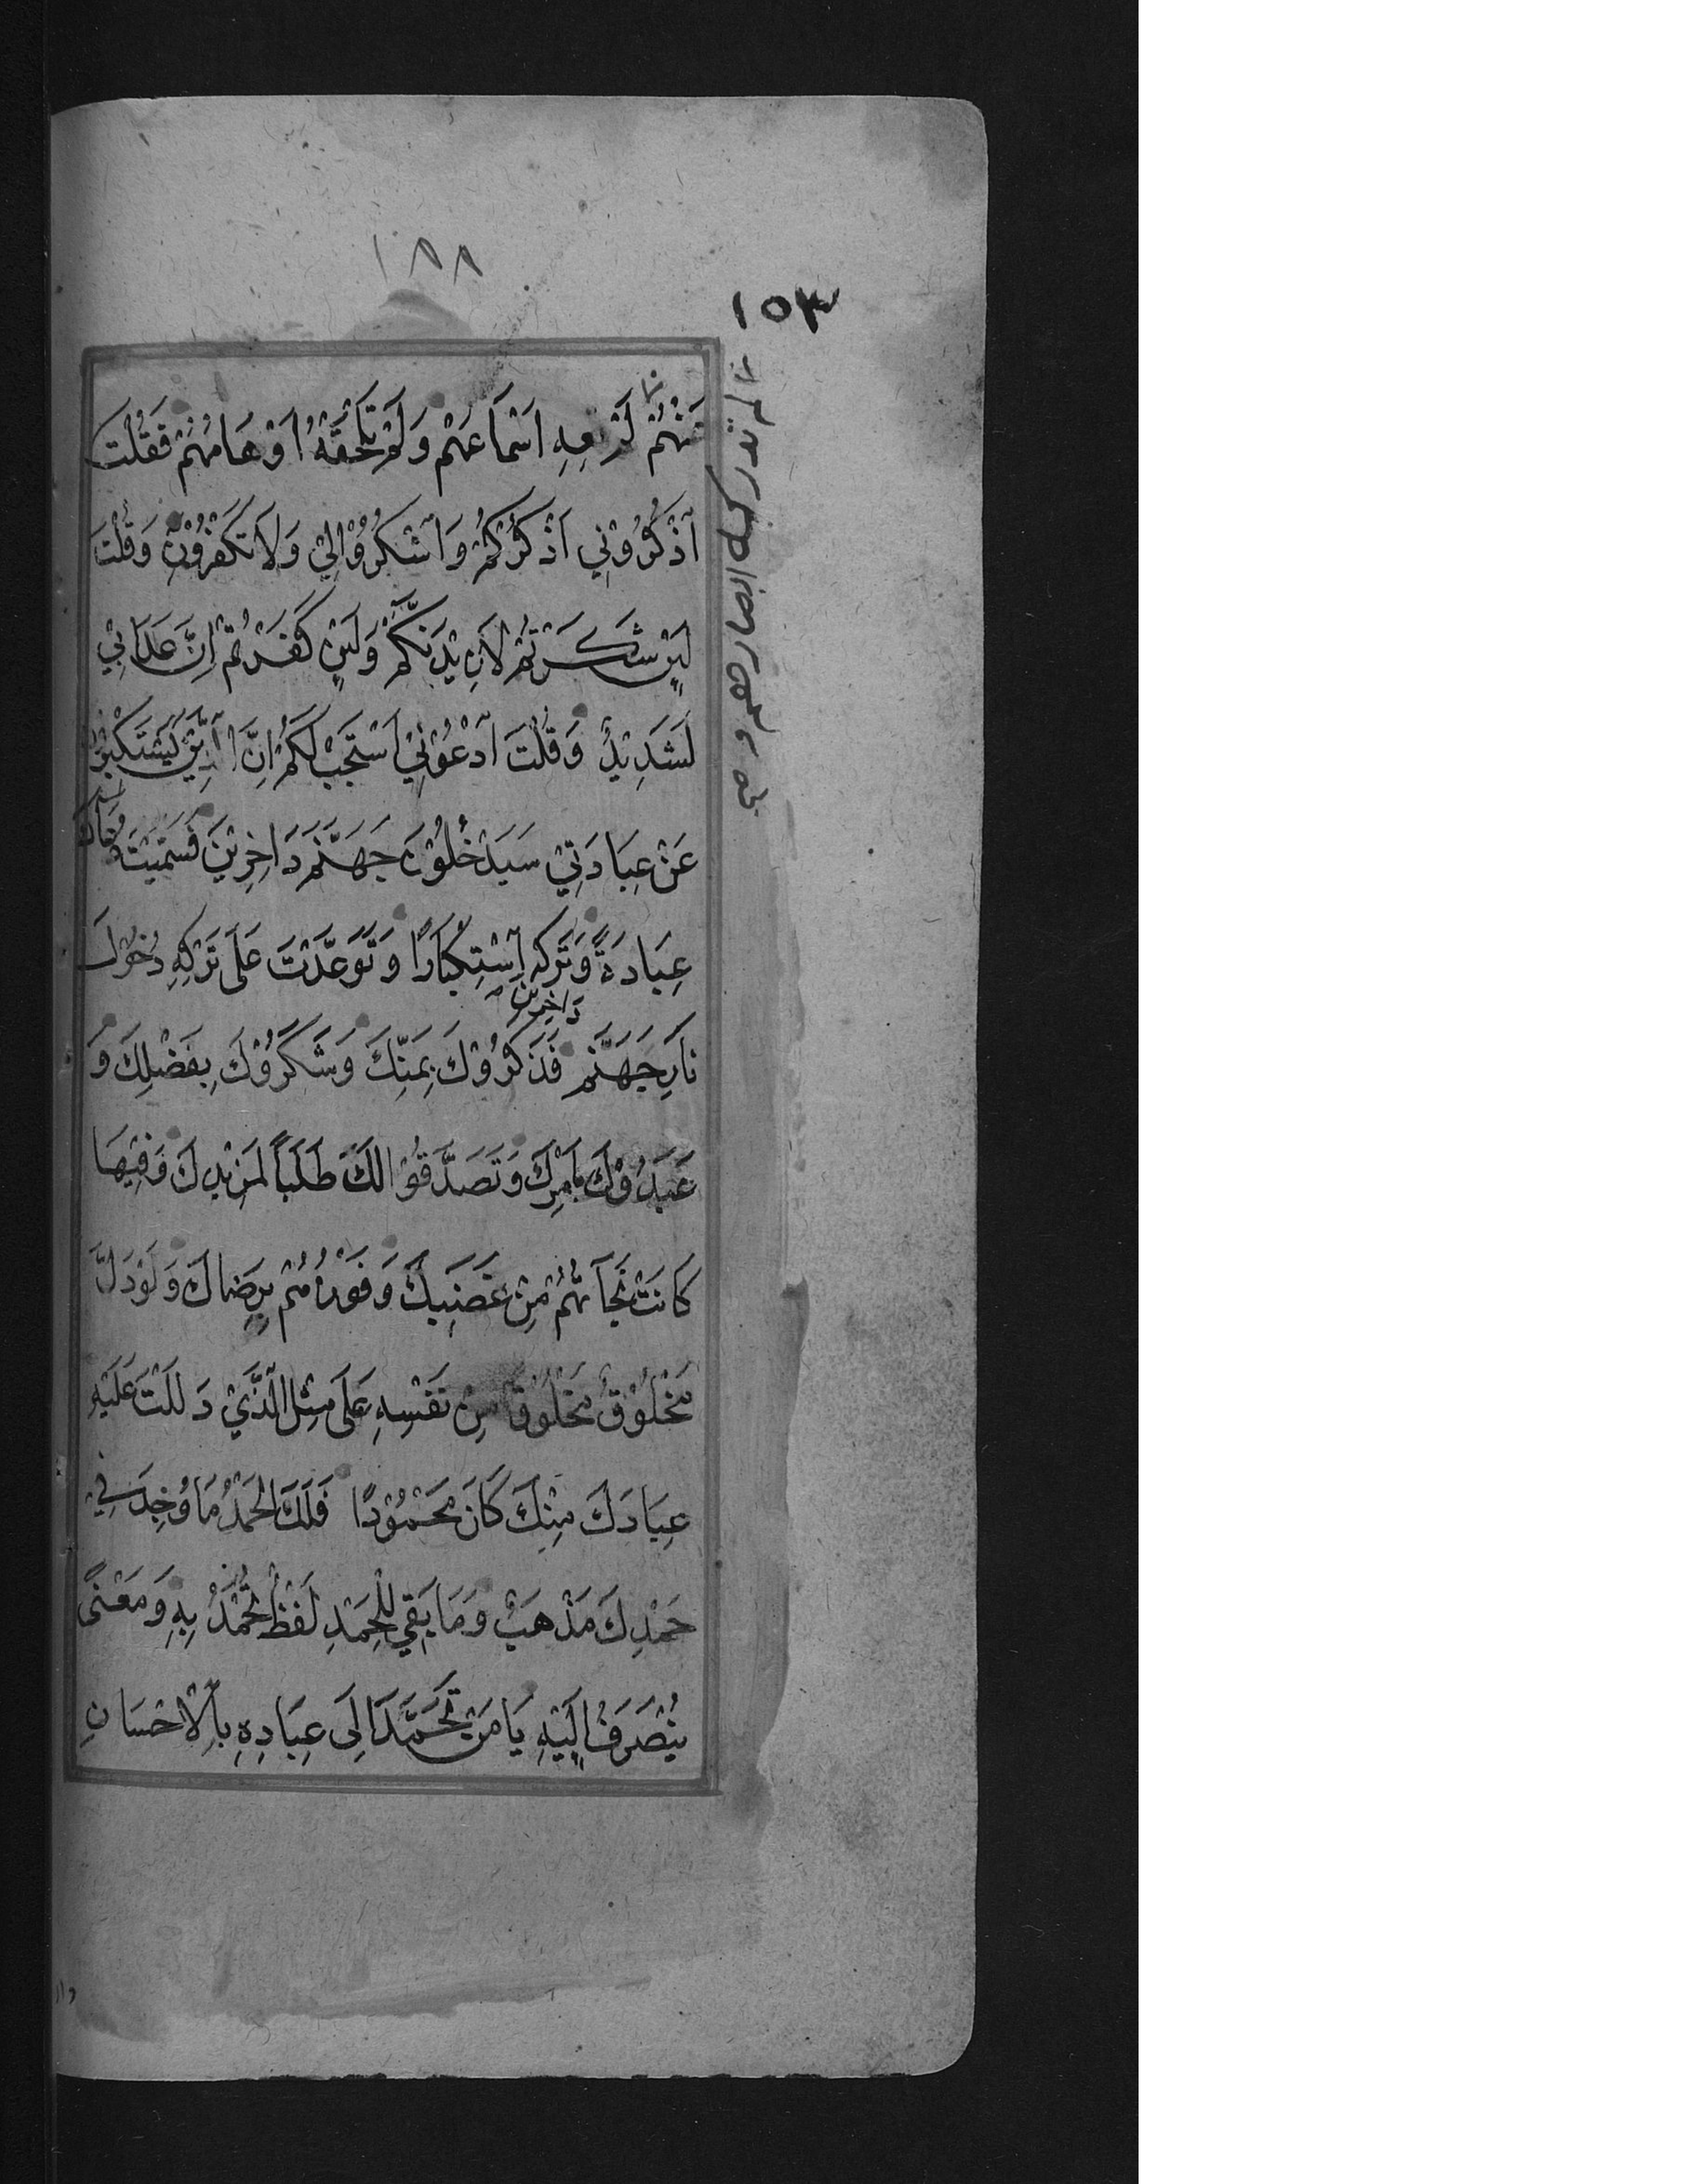 ١٨٨
١٥٣
عَنْهُمْ لَمْ تَعِهِ اَسْمَاعُهُمْ وَلَمْ تَلْحَقْهُ اَوْهَامُهُمْ فَقُلْتَ
اُذْكُرُوْنِي اَذْكُرْكُمْ وَاشْكُرُوْا لِيْ وَلَا تَكْفُرُوْنِ وَقُلْتَ
لَئِنْ شَكَرْتُمْ لَاَزِيْدَنَّكُمْ وَلَئِنْ كَفَرْتُمْ اِنَّ عَذَابِيْ
لَشَدِيْدٌ وَقُلْتَ ادْعُوْنِيْ اَسْتَجِبْ لَكُمْ اِنَّ الَّذِيْنَ يَسْتَكْبِرُوْنَ
عَنْ عِبَادَتِيْ سَيَدْخُلُوْنَ جَهَنَّمَ دَاخِرِيْنَ فَسَمَّيْتَ دُعَاءَكَ
عِبَادَةً وَتَرْكَهُ اسْتِكْبَارًا وَتَوَعَّدْتَ عَلَى تَرْكِهِ دُخُوْلَ
نَارِ جَهَنَّمَ دَاخِرِيْنَ فَذَكَرُوْكَ بِمَنِّكَ وَشَكَرُوْكَ بِفَضْلِكَ وَ
عَبَدُوْكَ بِاَمْرِكَ وَتَصَدَّقُوْا لَكَ طَلَبًا لِمَزِيْدِكَ وَفِيْهَا
كَانَتْ نَجَاتُهُمْ مِنْ غَضَبِكَ وَفَوْزُهُمْ بِرِضَاكَ وَلَوْ دَلَّ
مَخْلُوْقٌ مَخْلُوْقًا مِنْ نَفْسِهِ عَلَى مِثْلِ الَّذِيْ دَلَلْتَ عَلَيْهِ
عِبَادَكَ مِنْكَ كَانَ مَحْمُوْدًا فَلَكَ الْحَمْدُ مَا وُجِدَ فِيْ
حَمْدِكَ مَذْهَبٌ وَمَا بَقِيَ لِلْحَمْدِ لَفْظٌ تُحْمَدُ بِهِ وَمَعْنًى
يُنْصَرَفُ اِلَيْهِ يَا مَنْ تَحَمَّدَ اِلَى عِبَادِهِ بِالْاِحْسَانِ